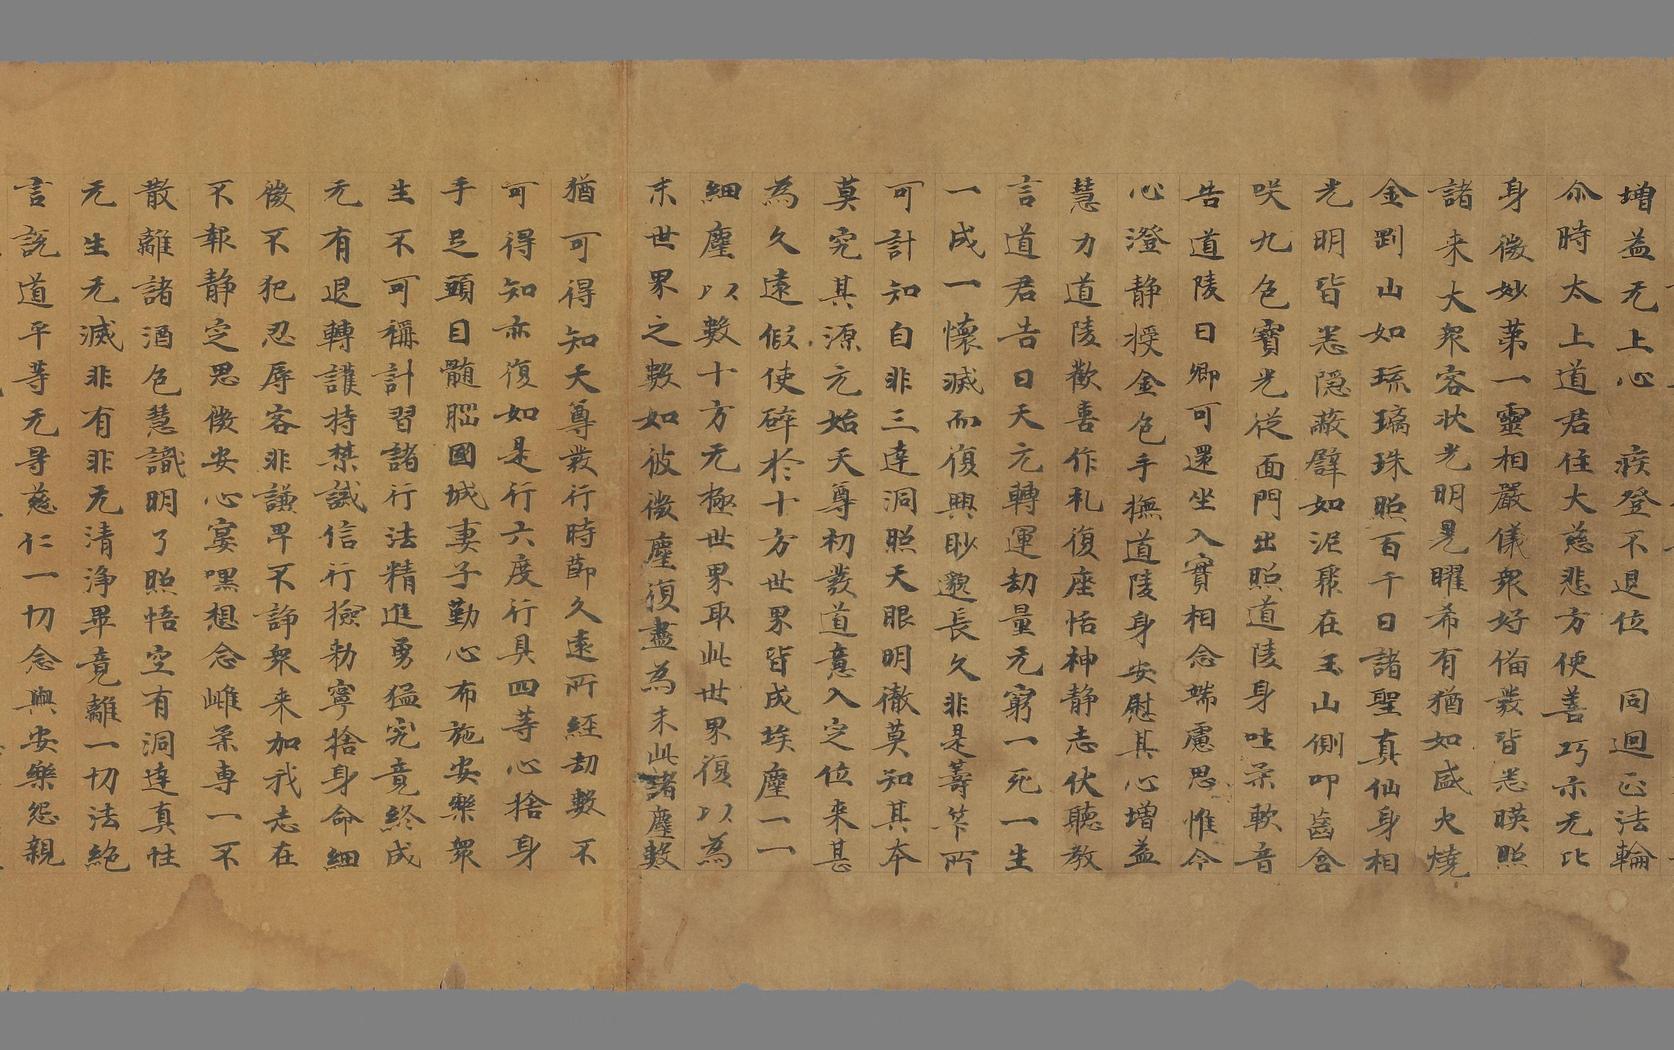 増益无上心　疾登不退位　同迴正法輪
尒時太上道君住大慈悲方便善巧示无比
身微妙第一靈相嚴儀衆好俻裁皆悉暎照
諸来大衆容状光明晃曜希有猶如盛火燒
金剛山如琉璃珠照百千日諸聖真仙身相
光明皆悉隠蔽譬如泥聚在玉山側叩齒含
咲九色寶光従面門出照道陵身吐柔軟音
告道陵曰卿可還坐入實相念端慮思惟令
心澄静授金色手撫道陵身安慰其心増益
慧力道陵歡喜作礼復座恬神静志伏聴教
言道君告曰天元轉運劫量无窮一死一生
一成一懐滅而復興眇邈長久非是籌竿所
可計知自非三達洞照天眼明徹莫知其夲
莫究其源元始天尊初裁道意入定位来甚
為久遠假使碎於十方世界皆成埃塵一一
細塵以數十方无極世界取此世界復以為
末世界之數如彼微塵復盡為末此諸塵數
猶可得知天尊裁行時節久遠所經劫數不
可得知亦復如是行六度行具四等心捨身
手足頭目髓脳國城妻子勤心布施安樂衆
生不可稱計習諸行法精進勇猛究竟終成
无有退轉護持禁誡信行撿勑寧捨身命細
微不犯忍辱容非謙畀不諍衆来加我志在
不報静定思微安心宴嘿想念雌柔専一不
散離諸酒色慧識明了照悟空有洞達真性
无生无滅非有非无清浄畢竟離一切法絶
言説道平等无㝵慈仁一切念與安樂怨親